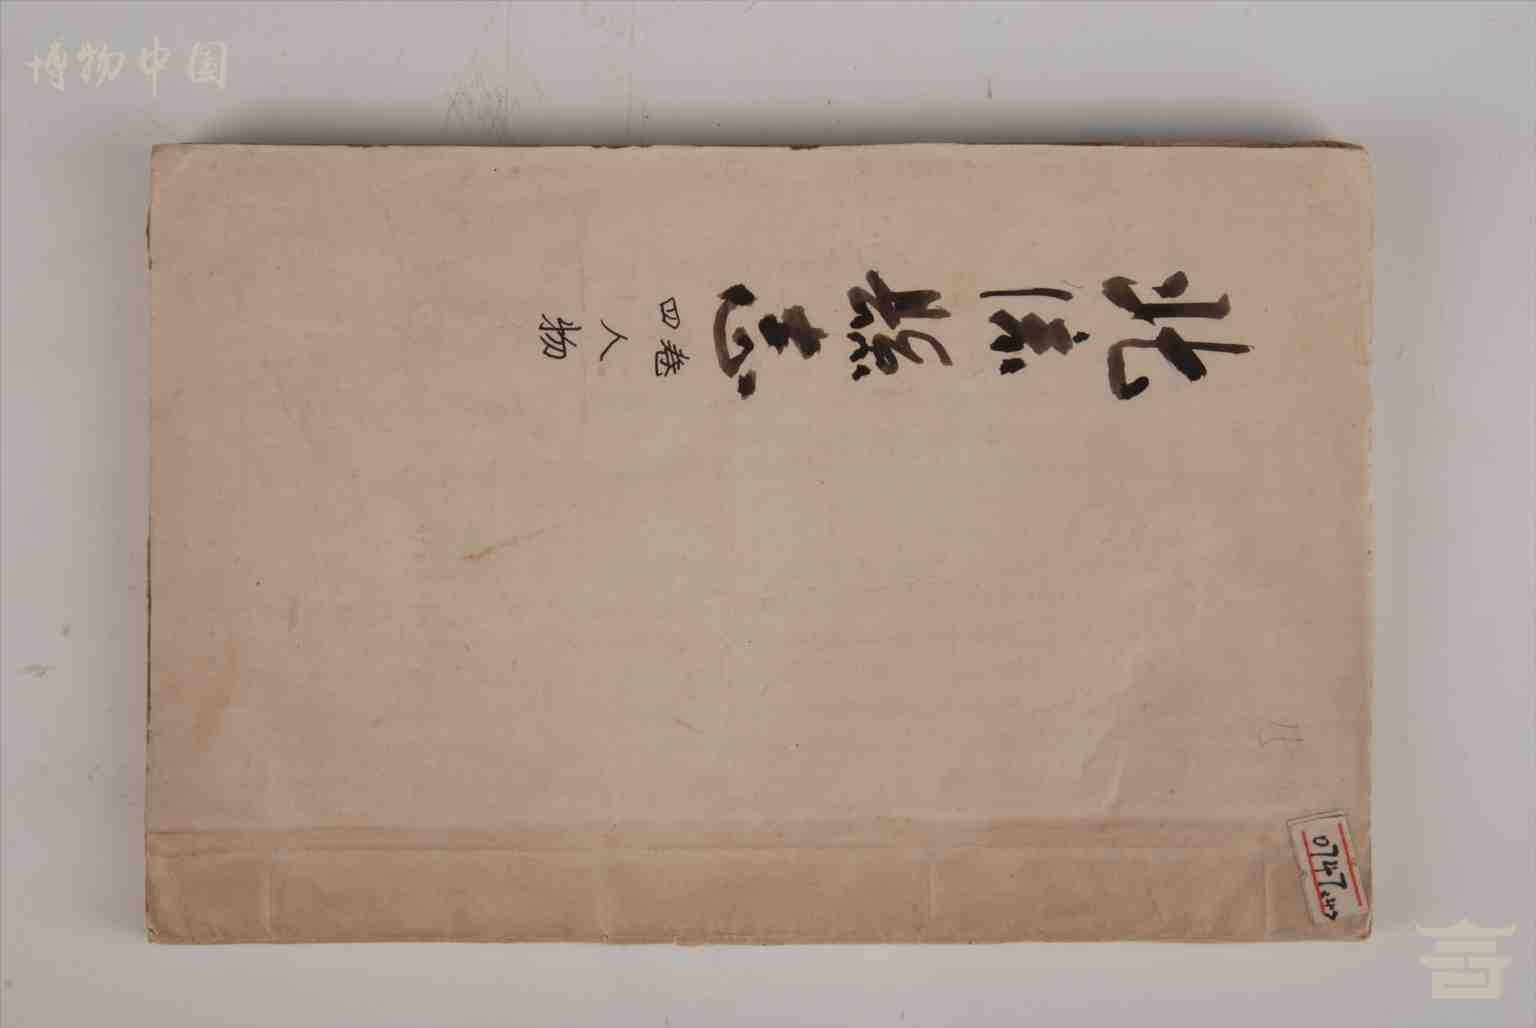 博物中国
北流縣志
四卷
人物
0747